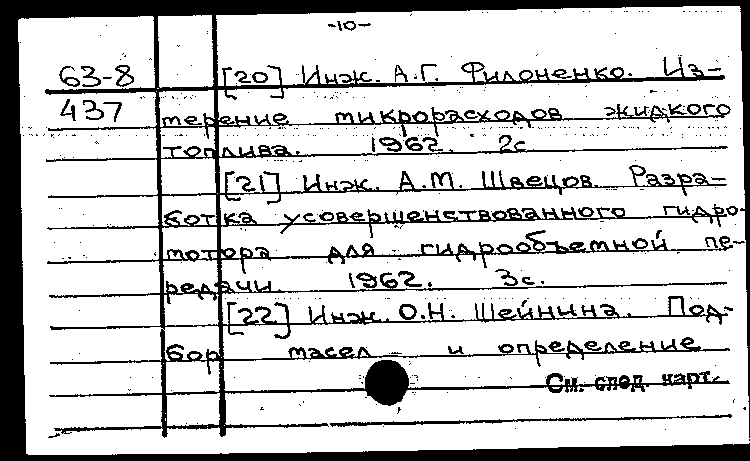 -10-
63-8 [20] Инж. А.Г. Филоненко. Из-
437 мерение микрорасходов жидкого
топлива. 1962. 2с
[21] Инж. А.М. Швецов. Разра-
ботка усовершенствованного гидро-
мотора для гидрообъемной пе-
редачи. 1962. 3с.
[22] Инж. О.Н. Шейнина. Под-
бор масел и определение
См. след. карт.